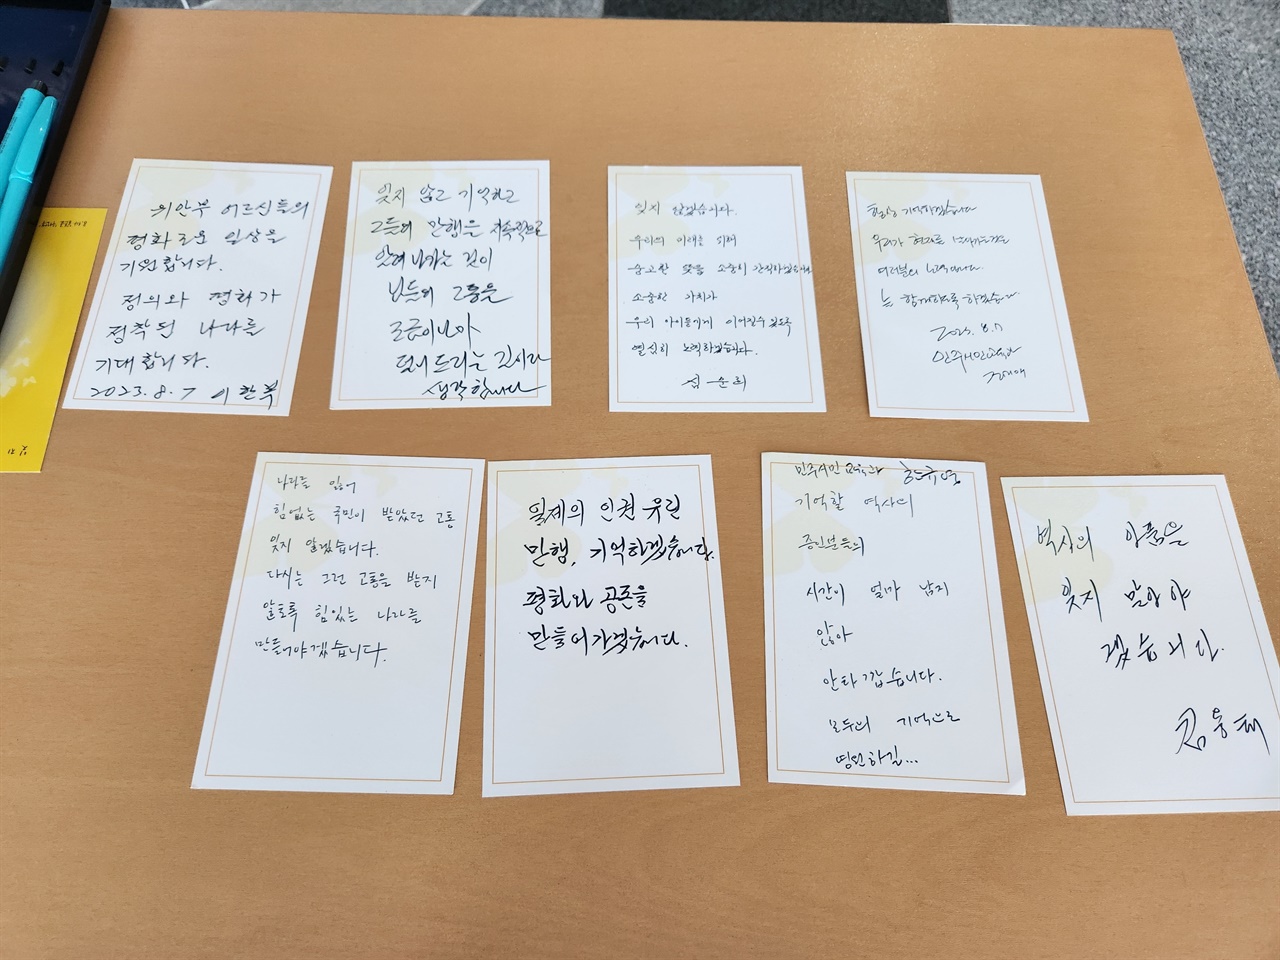 위안부 어르신들의
평화로운 일상을
기원합니다.
정의와 평화가
정착된 나라를
기대합니다.
2023.8.7 이한복
잊지 않고 기억하고
그들의 만행을 지속적으로
알려 나가는 것이
분들의 고통을
조금이나마
덜어드리는 길이라
생각합니다
잊지 않겠습니다.
우리의 미래를 위해
숭고한 뜻을 소중히 간직하겠습니다
소중한 가치가
우리 아이들에게 이어질수 있도록
열심히 노력하겠습니다.
심순희
항상 기억하겠습니다
우리가 현재를
여러분의
늘 함께하도록 하겠습니다
2023. 8.7
민주시민교육과
나라를 잃어
힘없는 국민이 받았던 고통
잊지 않겠습니다.
다시는 그런 고통을 받지
않도록 힘있는 나라를
만들어야겠습니다.
일제의 인권 유린
만행, 기억하겠습니다.
평화와 공존을
만들어가겠습니다.
민주시민교육과
기억할 역사의
증인분들의
시간이 얼마 남지
않아
안타깝습니다.
모두의 기억으로
영원하길...
역사의 아픔을
잊지 말아야
겠습니다.